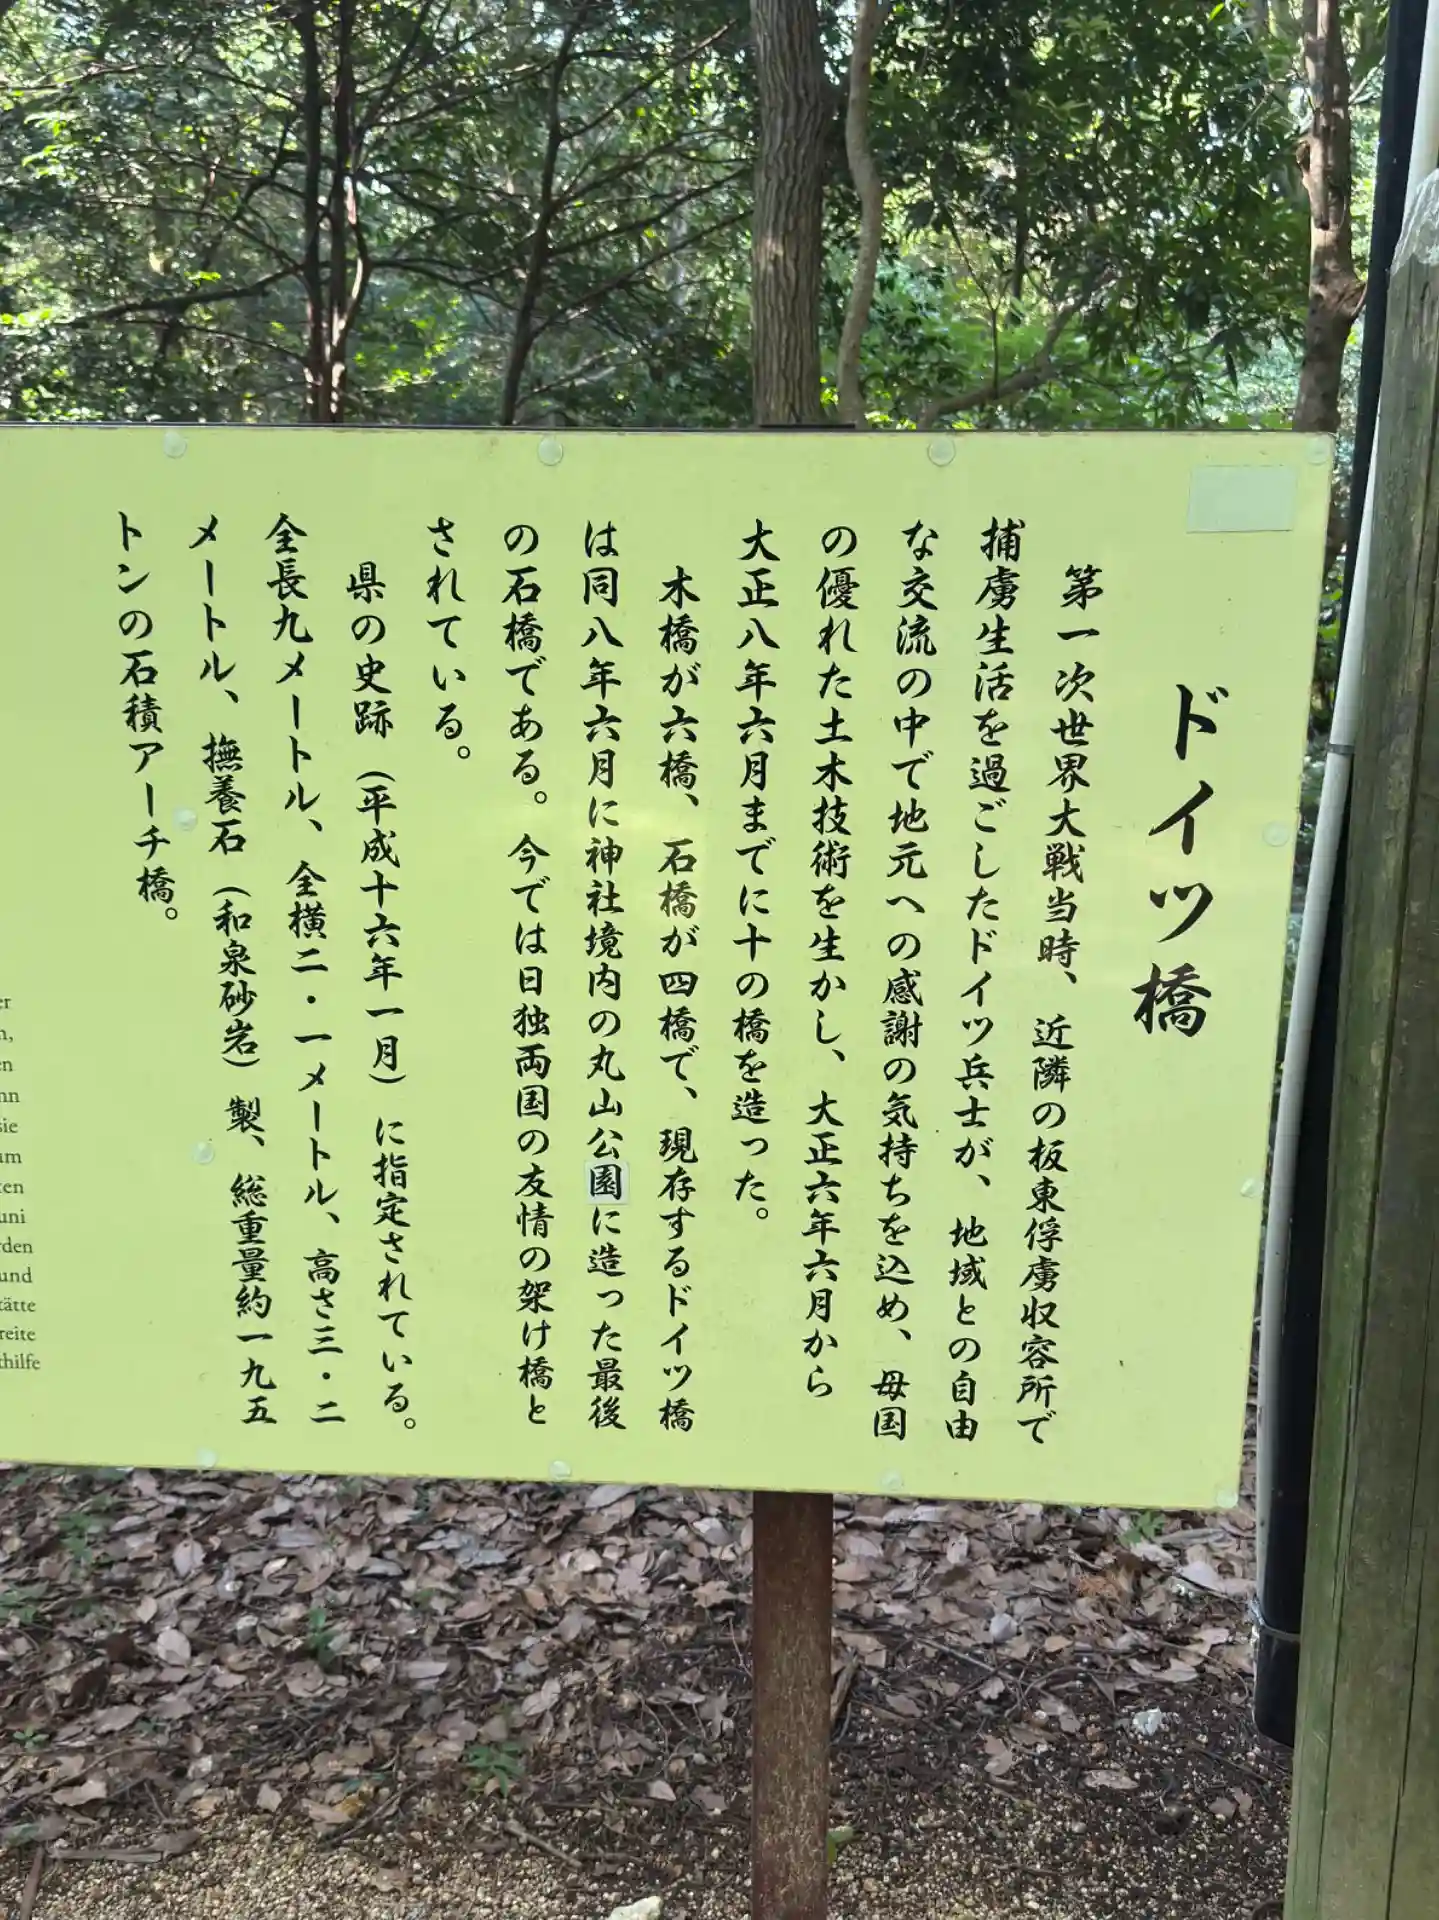 ドイツ橋
第一次世界大戦当時、近隣の板東俘虜収容所で
捕虜生活を過ごしたドイツ兵士が、地域との自由
な交流の中で地元への感謝の気持ちを込め、母国
の優れた土木技術を生かし、大正六年六月から
大正八年六月までに十の橋を造った。
木橋が六橋、石橋が四橋で、現存するドイツ橋
は同八年六月に神社境内の丸山公園に造った最後
の石橋である。今では日独両国の友情の架け橋と
されている。
県の史跡（平成十六年一月）に指定されている。
全長九メートル、全横二・一メートル、高さ三・二
メートル、撫養石（和泉砂岩）製、総重量約一九五
トンの石積アーチ橋。
er
n,
en
nn
sie
um
ten
uni
rden
und
tätte
reite
thilfe